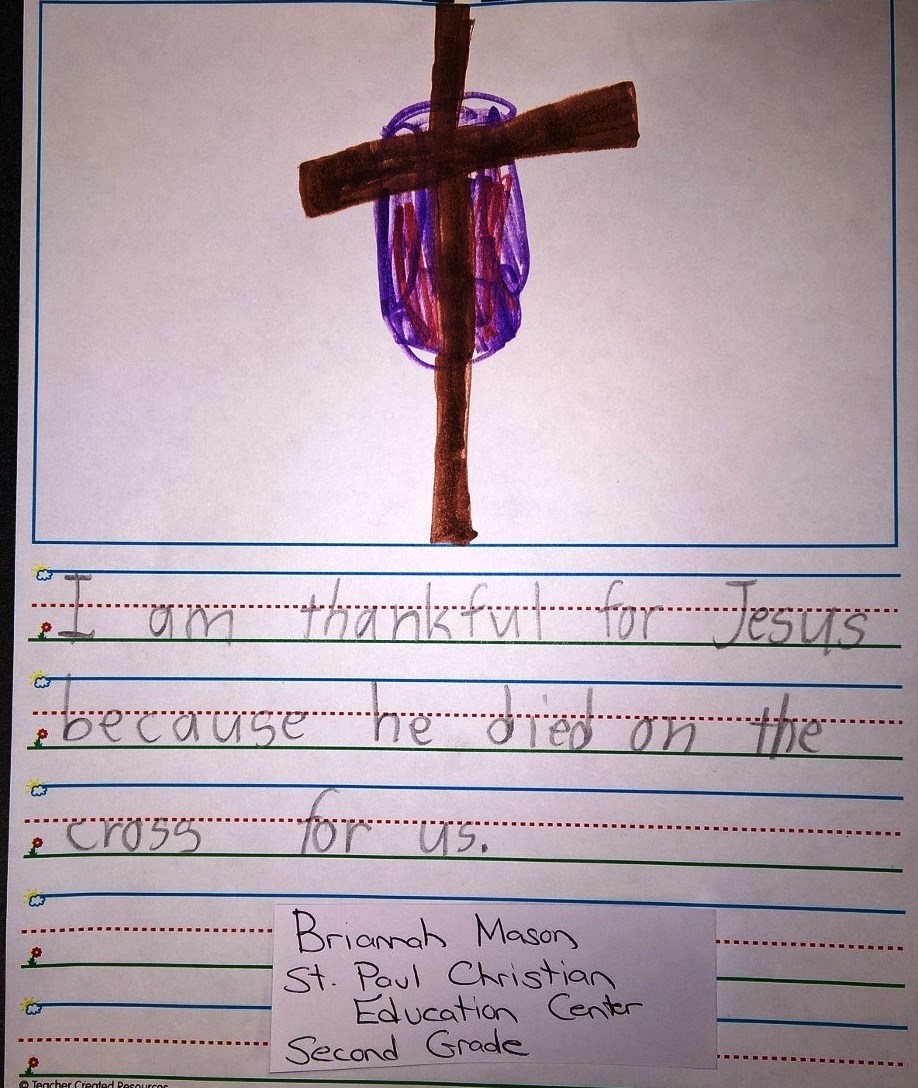 I am thankful for Jesus
because he died on the
cross for us.
Briannah Mason
St. Paul Christian
Education Center
Second Grade
© Teacher Created Resources